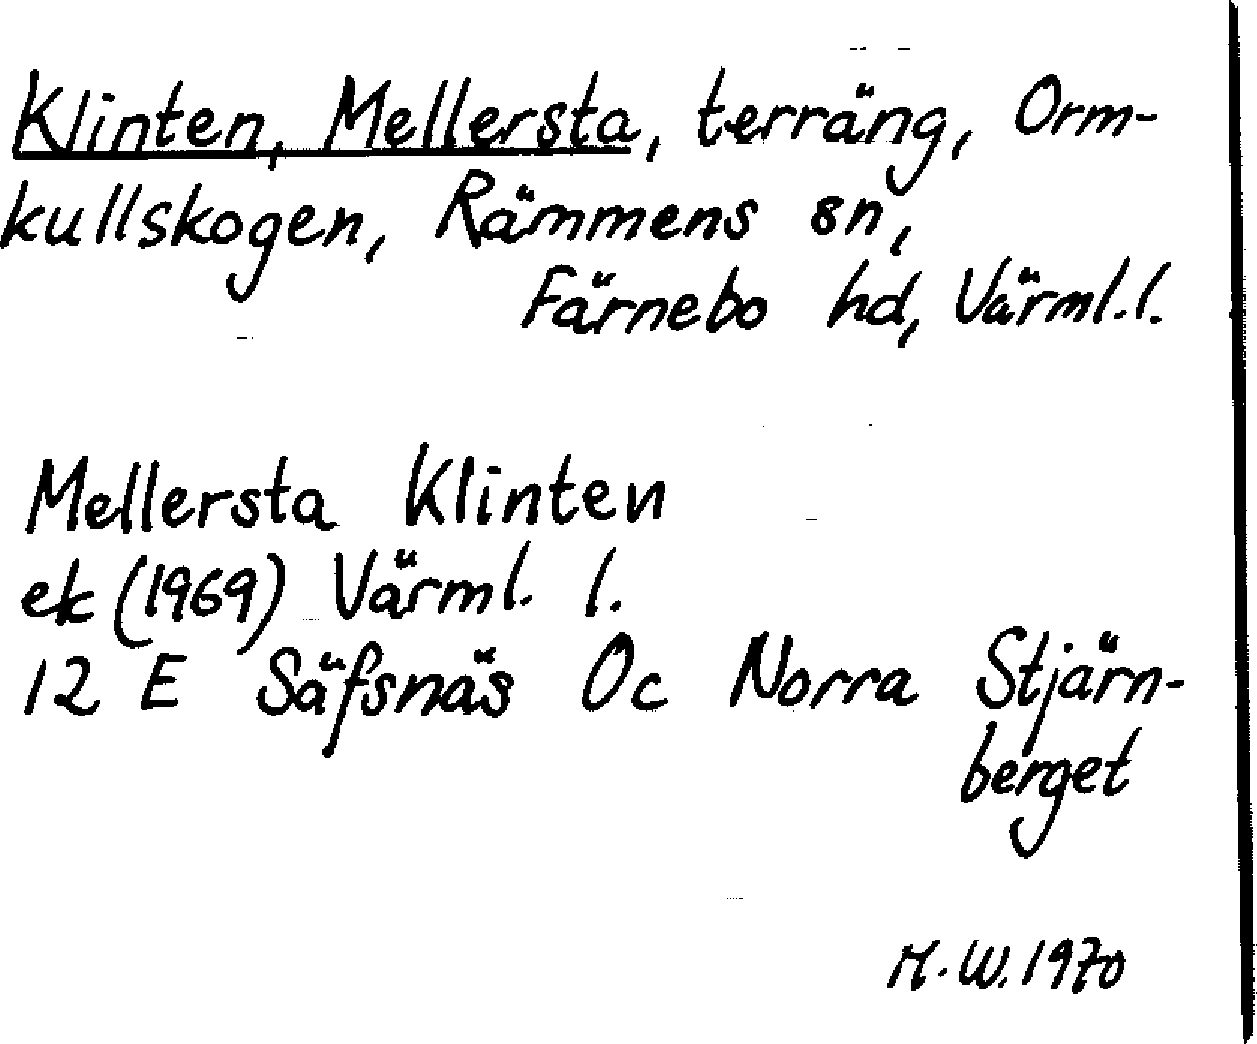 Klinten, Mellersta, terräng, Orm-
kullskogen, Rämmens sn,
Färnebo hd, Värml.l.
Mellersta Klinten
ek (1969) Värml. l.
12 E Säfsnäs 0c Norra Stjärn-
berget
M.W. 1970